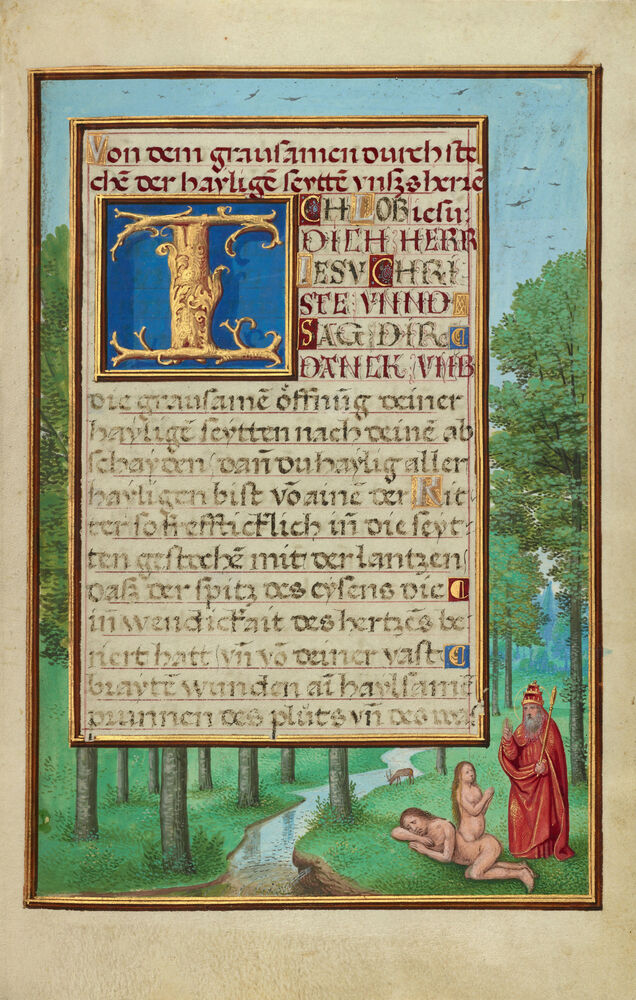 Von dem grausamen durchste
chē der hayligē seyttē vnszs herrē
ICH LOB iesu
DICH HERR
IESV CHRI
STE VNND
SAG DIR
DANCK VMB
die grausamē öffnūg deiner
haylige seytten nach deinē ab
schayden/ dan̄ du haylig aller
hayligen bist/ vō ainē der Rit
ter so kreffticklich in̄ die seyt
ten gestochē mit der lantzen/
dasz der spitz des eysens die
in̄ wendickait des hertzēs be
riert hatt/ vn̄ vō deiner vast
braytē wunden ain haylsamē
prunnen des pluts vn̄ des was